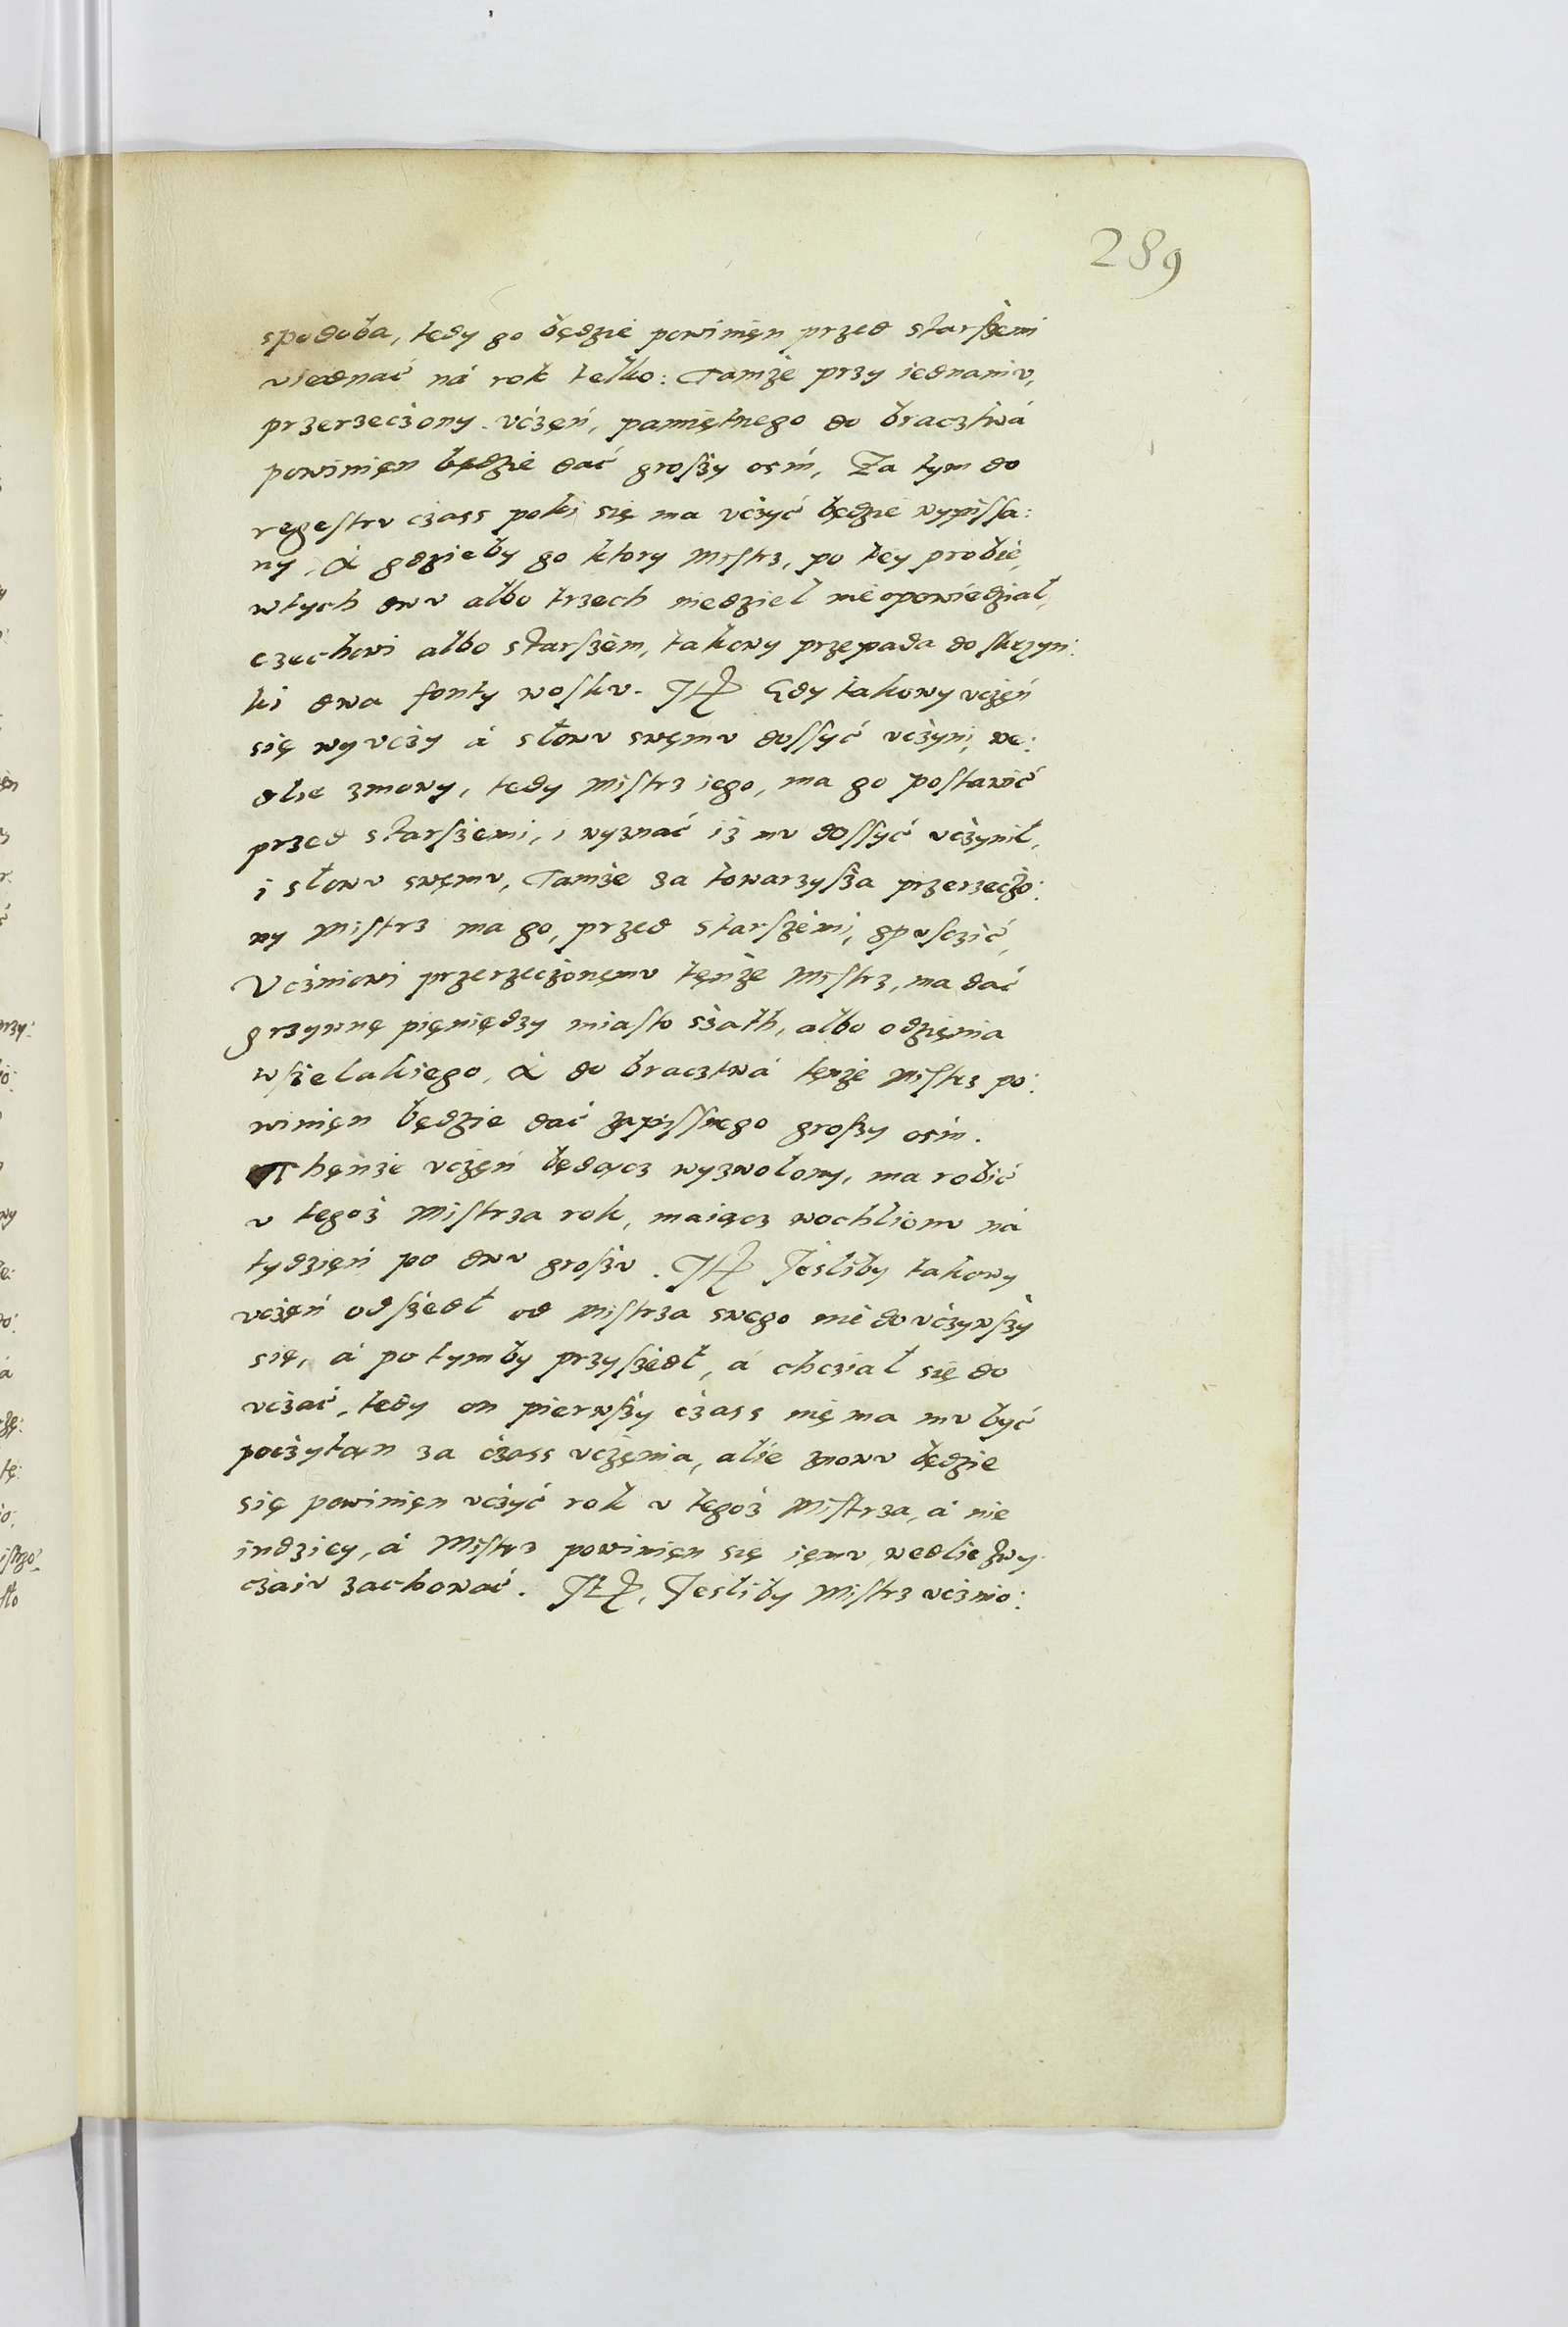 289
spodoba, tedy go będzie powinięn przed starszemi
ziednać ná rok telko: Tamże przy iednaniu,
przerzeczony vczęń, pamiętnego do bracztwá
powinięn będzie dać groszy ośḿ, Za tym do
regestru czass poki się ma vczyć będzie wypissa:
ny, A gdzieby go ktory Mistrz, po tey probie,
wtych dwu albo trzech niedziel nieopowiedział,
czechowi albo starszem, takowy przepada do skrzyn:
ki dwa fonty wosku. It Gdy takowy vczęń
się wyvczy á słowu swęmu dossyć vczyni, we:
dlie zmowy, tedy Mistrz iego, ma go postawić
przed starszemi, i wyznać iż mu dossyć vczynił,
i słowu swęmu, Tamże za towarzysza przerzeczo:
ny Mistrz ma go, przed starszemi, spuscić,
Vczniowi przerzeczonęmu tęnże Mistrz, ma dać
grzywnę pięniędzy miasto szath, albo odzięnia
wszelakiego, A do bracztwá tęnże Mistrz po:
winięn będzie dać zapissnego groszy ośm.
Thęnże vczęń będącz wyzwolony, ma robić
v tegoż Mistrza rok, maiącz wochlionu ná
tydzięń po dwu groszu. It Jesliby takowy
vczęń odszedł od Mistrza swego niedovczywszy
się, á potymby przyszedł, á chcział się do
vczać, tedy on pierwszy czass nię ma mu być
poczytan za czass vczęnia, alie znowu będzie
się powinięn vczyć rok v tegoż Mistrza, á nie
indziey, á Mistrz powinięn się ięmu wedlie zwy
czaiu zachować. It, Jesliby Mistrz vcznio: